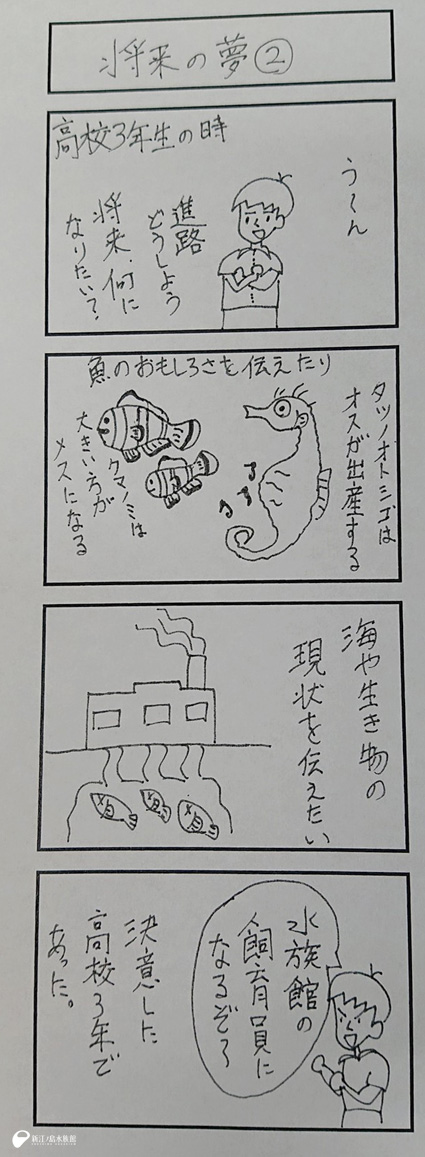 将来の夢②
高校3年生の時
う〜ん
進路
どうしよう
将来、何に
なりたい？
魚のおもしろさを伝えたり
タツノオトシゴは
オスが出産する
クマノミは
大きい方が
メスになる
海や生き物の
現状を伝えたい
水族館の
飼育員に
なるぞ〜
決意した
高校3年で
あった。
新江ノ島水族館